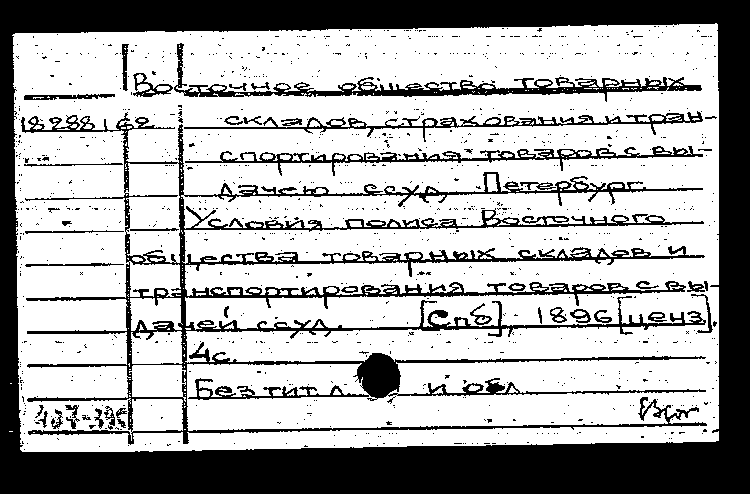 Восточное общество товарных
18288162 складов, страхования и тран-
спортирования товаров с вы-
дачею ссуд, Петербург.
Условия полиса Восточного
общества товарных складов и
транспортирования товаров с вы-
дачей ссуд. [Спб], 1896 [ценз].
4с.
Без тит л. и обл